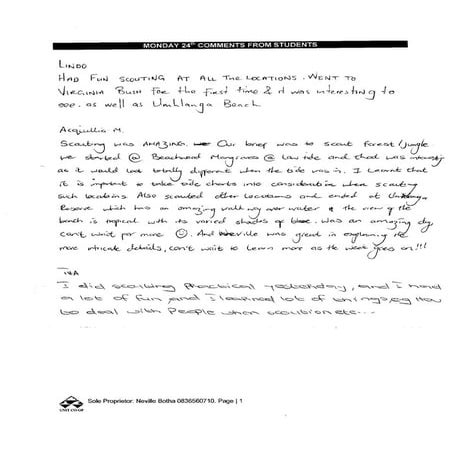 MONDAY 24th COMMENTS FROM STUDENTS
LINDO
HAD FUN SCOUTING AT ALL THE LOCATIONS. WENT TO
VIRGINIA BUSH FOR THE FIRST TIME & it was interesting to
see. as well as Umhlanga Beach
M.
Scouting was AMAZING. Our brief was to scout Forest/jungle
we started @ Beachwood Mangroves @ Low tide and that was
as it would look totally different when the tide was in. I Learnt that
it is important to take tide charts into consideration when scouting
such locations. Also scouted other locations and ended at
Reserve which has an amazing walkway over water & the view of the
beach is magical with its varied shades of blue. Was an amazing day
can't wait for more ☺. And Neville was great in explaining the
more intricate details, can't wait to learn more as the week goes on!!!
IVA
I did scouting practical yesterday, and I had
a lot of fun and I learned lot of things, eg How
to deal with People when etc...
UNIT CO-OP
Sole Proprietor: Neville Botha 0836560710. Page | 1